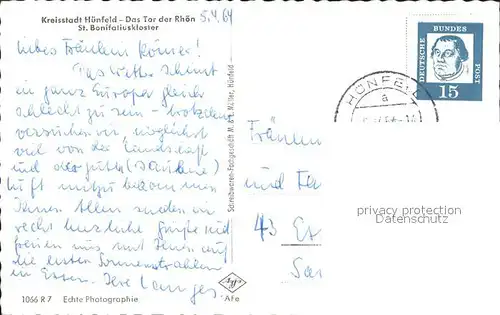 Kreisstadt Hünfeld – Das Tor der Rhön
St. Bonifatiuskloster
5.4.64
liebes Fräulein Römer!
Das Wetter scheint
in ganz Europa gleich
schlecht zu sein – trotzdem
versuchen wir, möglichst
viel von der Landschaft
und der guten (sauberen)
Luft mitzubekommen
Ihnen Allen senden wir
recht herzliche Grüße und
freuen uns mit Ihnen auf
die ersten Sonnenstrahlen
in Essen. Ihre Langes.
1066 R 7 Echte Photographie
Schreibwaren-Fachgeschäft M. u. E. Müller, Hünfeld
Agfa
AFe
DEUTSCHE BUNDES
POST
15
HÜNFELD
a
Fräulein
und
43 Es
privacy protection
Datenschutz